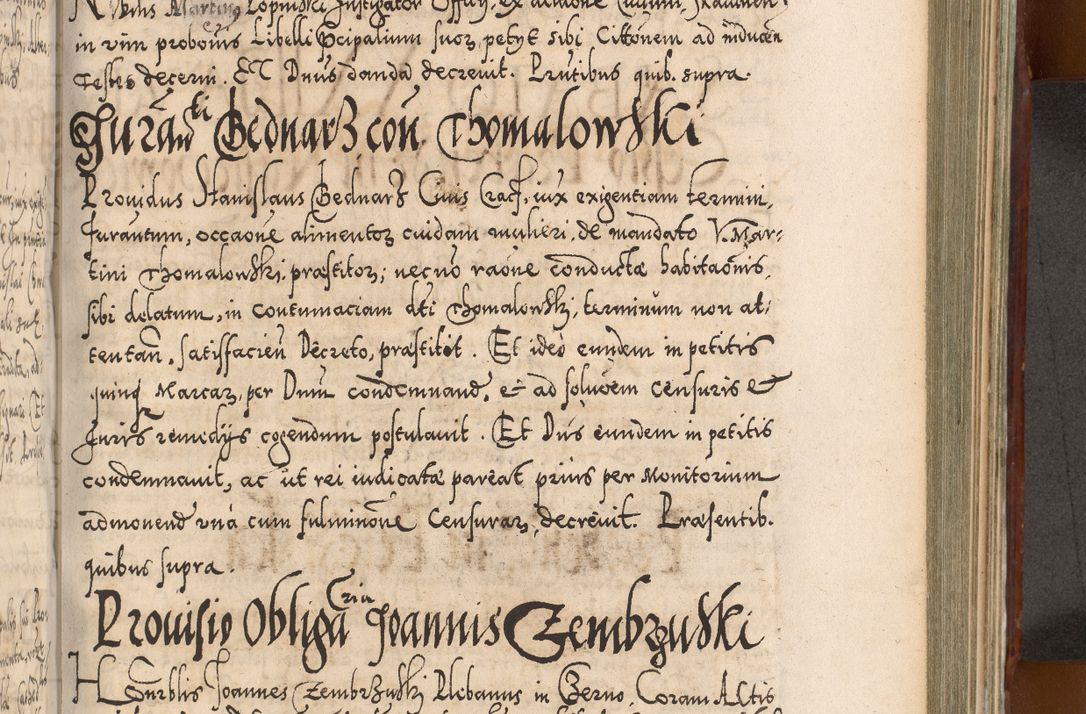 in vim probonis Libelli Pcipalium suoz, petyt sibi Cittonem ad inducen
Testes decerni. Et Dnus danda decreuit. Prutibus quib. supra.
Juran̄ti Bednarz con̄ Thomalowski
Prouidus Stanislaus Bednarz Ciuis Crac. iux exigentiam termini,
Jurantum, occaōne alimentoz cuidam mulieri, de mandato V. Mar-
tini Thomalowski præstitoz; necno raōne conductæ habitaōnis
sibi delatum, in contumaciam dti Thomalowski, terminum non at-
tentan̄, satisfacien̄ Decreto, præstitit. Et ideo eundem in petitis
quinq Marcaz, per Dnum condemnand, et ad soluem censuris et
Juris remedijs cogendum postulauit. Et Dus eundem in petitis
condemnauit, ac ut rei iudicatæ pareat prius per Monitorium
admonend una cum fulminōne Censuraz, decreuit. Præsentib.
quibus supra.
Prouisio Obligaria Joannis Zembrzuski
Hourblis Joannes Zembrzuski Plebanus in Czerno, Coram Actis